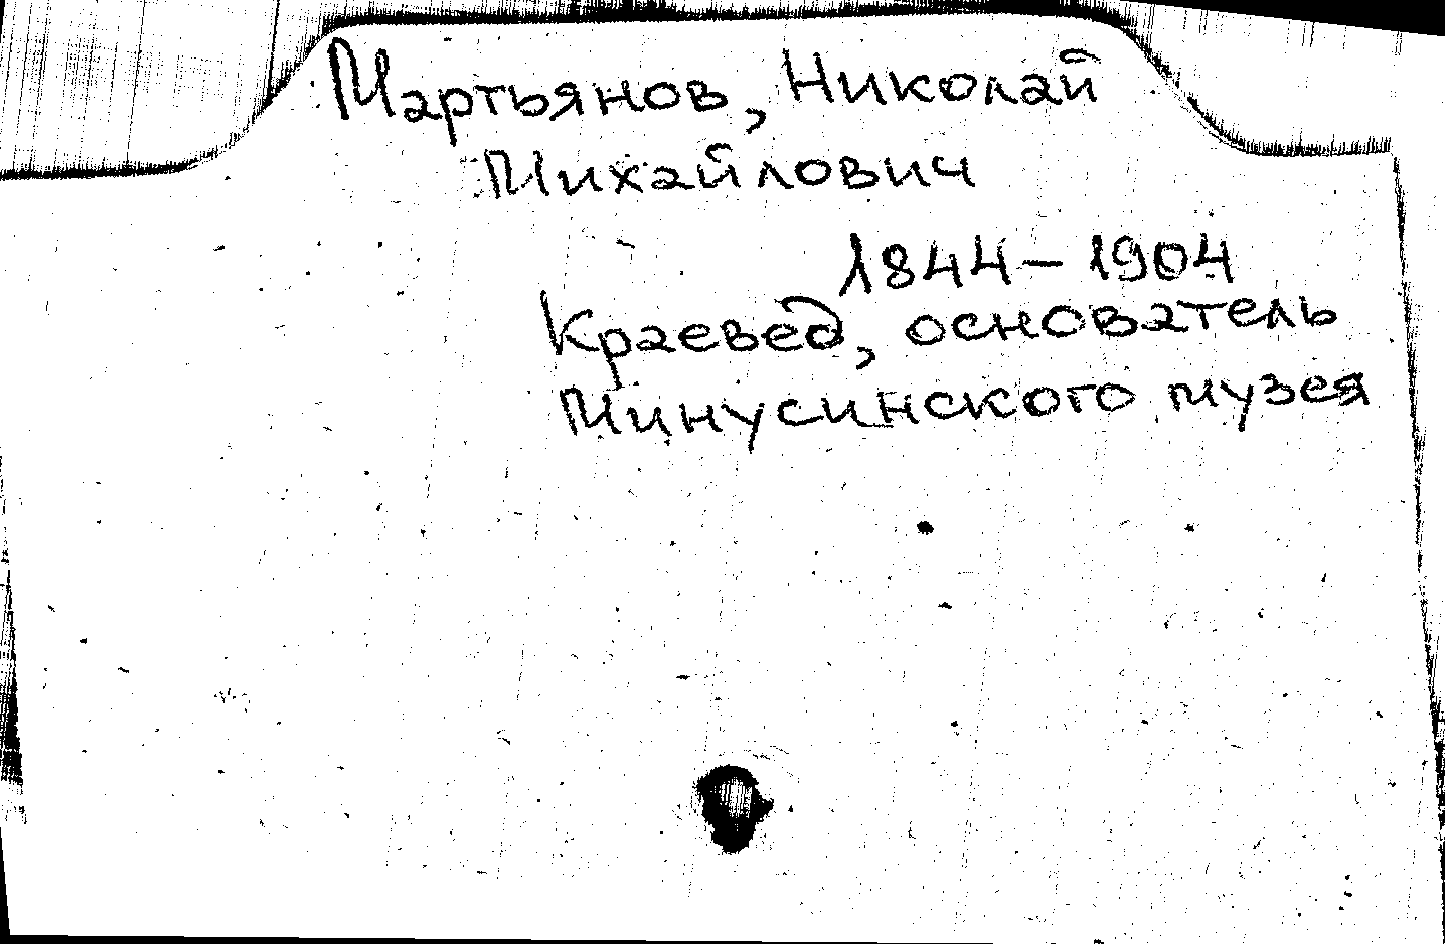 Мартьянов, Николай
Михайлович
1844 – 1904
Краевед, основатель
Минусинского музея